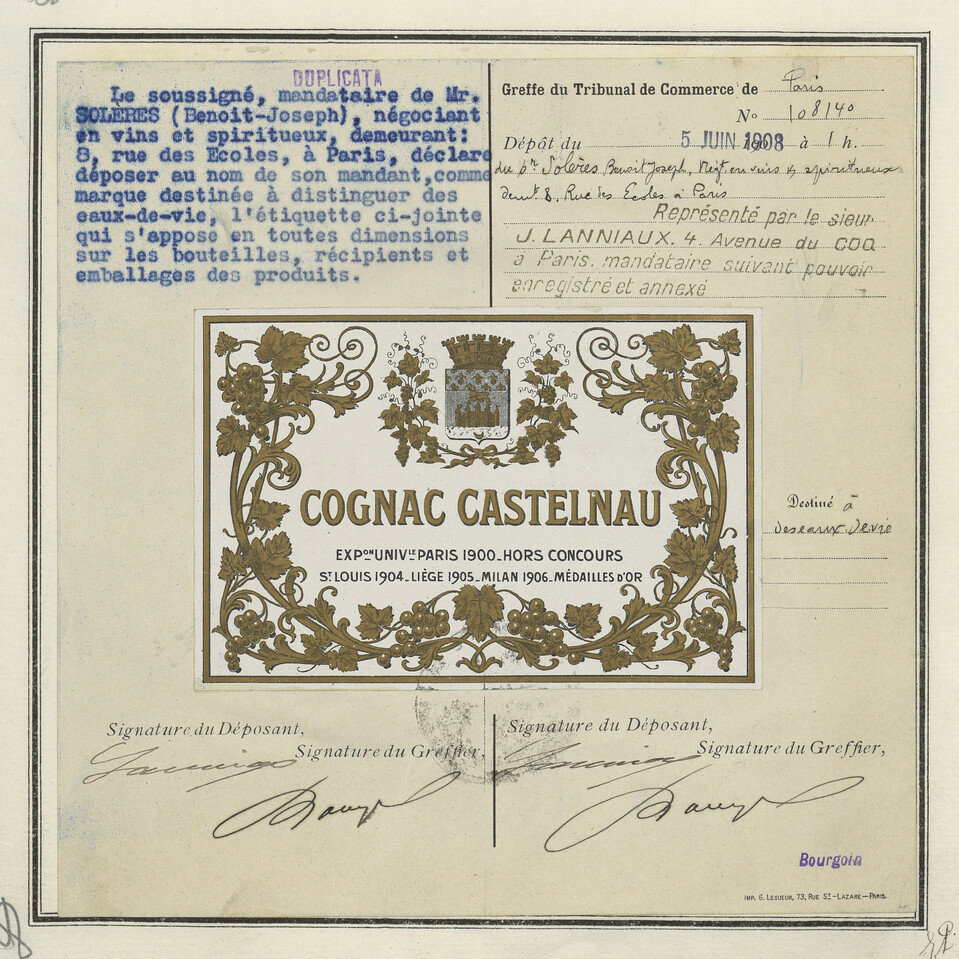 DUPLICATA
Le soussigné, mandataire de Mr.
SOLÈRES (Benoit-Joseph), négociant
en vins et spiritueux, demeurant:
8, rue des Ecoles, à Paris, déclare
déposer au nom de son mandant, comme
marque destinée à distinguer des
eaux-de-vie, l'étiquette ci-jointe
qui s'appose en toutes dimensions
sur les bouteilles, récipients et
emballages des produits.
Greffe du Tribunal de Commerce de Paris
No 108140
Dépôt du 5 JUIN 1908 à 1 h.
du Sr Solères Benoit Joseph, Négt en vins & spiritueux
demt 8, Rue des Ecoles à Paris
Représenté par le sieur
J. LANNIAUX. 4. Avenue du COQ
à Paris. mandataire suivant pouvoir
enregistré et annexé
COGNAC CASTELNAU
EXPon UNIVle PARIS 1900_HORS CONCOURS
St LOUIS 1904_LIÈGE 1905_MILAN 1906_MÉDAILLES D'OR
Destiné à
des eaux de vie
Signature du Déposant,
Signature du Greffier,
Signature du Déposant,
Signature du Greffier,
Bourgoin
IMP. G. LESUEUR, 73, RUE St-LAZARE—PARIS.